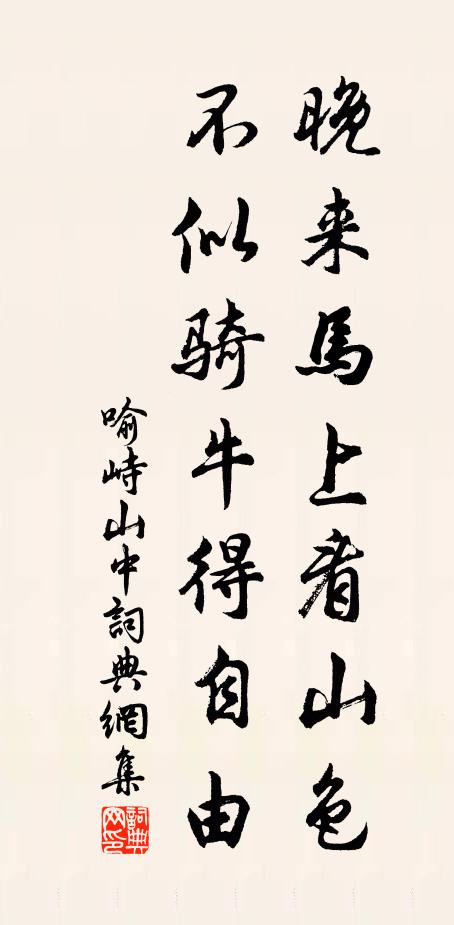 晚来馬上看山色
不似骑牛得自由
喻峙山中詞典網集
詞典网印